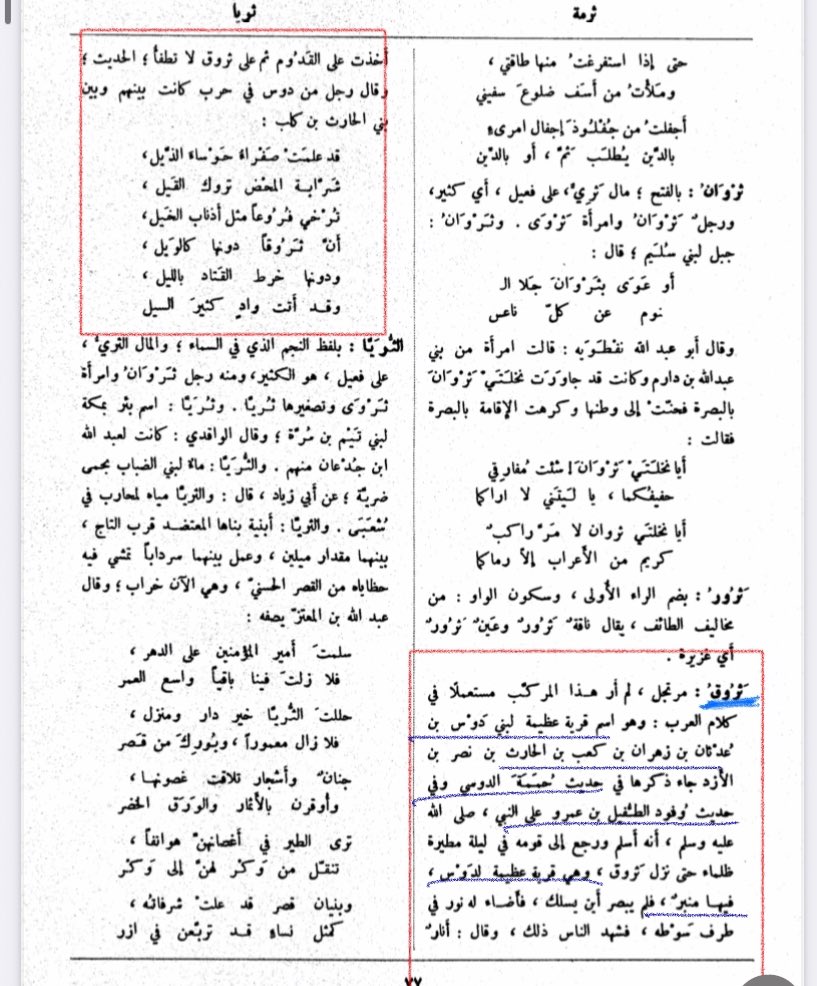 ثرمة
ثريا
حتى إذا استفرغتُ منها طاقتي ،
ومَلأتُ من أسَف ضلوعَ سفيني
أجفلتُ من جُفْلُوذَ إجفال امرىءٍ
بالدَّين يُطلَب ثَمَّ ، أو بالدِّين
ثَرْوَانُ : بالفتح ؛ مال ثَرِيٌّ، على فعيل ، أي كثير،
ورجلٌ ثَرْوَانُ وامرأة ثَرْوَى . وثَرْوَانُ :
جبل لبني سُلَيم ؛ قال :
أو عَوَى بثَرْوَانَ جَلا الـ
نوم عن كلّ ناعس
وقال أبو عبد الله نفْطَوَيه : قالت امرأة من بني
عبدالله بن دارم وكانت قد جاوَرَت نخلَتَيْ ثَرْوَانَ
بالبصرة فحنّتْ إلى وطنها وكرهت الإقامة بالبصرة
فقالت :
أيا نخلَتَيْ ثَرْوَانَ! شئت مُفارِقي
حفيفَكما ، يا لَيتَني لا اراكما
أيا نخلتَي ثروان لا مَرَّ راكبٌ
كريم من الأعراب إلاّ رماكما
ثَرُورُ : بضم الراء الأولى ، وسكون الواو : من
مخاليف الطائف ، يقال ناقةٌ ثَرُورٌ وعَينٌ ثَرُورٌ
أي غزيرة .
ثَرُوقُ : مرتجل ، لم أر هذا المركّب مستعملًا في
كلام العرب : وهو اسم قرية عظيمة لبني دَوْس بن
عُدْثان بن زهران بن كعب بن الحارث بن نصر بن
الأزد جاء ذكرها في حديث حُمَمَةَ الدوسي وفي
حديث وُفود الطُّفَيل بن عمرو على النبي ، صلى الله
عليه وسلم ، أنه أسلم ورجع إلى قومه في ليلة مطيرة
ظلماء حتى نزل ثَرُوق ، وهي قرية عظيمة لدَوْس ،
فيها منبرٌ ، فلم يبصر أين يسلك ، فأضاء له نور في
طرف سَوْطه ، فشهد الناس ذلك ، وقال : أنارٌ
أخذت على القَدُوم ثم على ثروق لا تطفأ ؛ الحديث ؛
وقال رجل من دوس في حرب كانت بينهم وبين
بني الحارث بن كعب :
قد علمَتْ صَفْراءُ حَوْساءُ الذَّيل،
شَرَّابة المَحْض تروك القَيل ،
تُرْخي فُرُوعاً مثل أذناب الخَيل،
أنَّ ثَرُوقاً دونها كالوَيل ،
ودونها خرط القَتاد بالليل ،
وقد أتت وادٍ كثيرَ السيل
الثُّرَيّا : بلفظ النجم الذي في السماء ؛ والمال الثريّ ،
على فعيل ، هو الكثير، ومنه رجل ثَرْوَانُ وامرأة
ثَرْوَى وتصغيرها ثُرَيّا . وثُرَيّا : اسم بئر بمكة
لبني تَيْم بن مُرّة ؛ وقال الواقدي : كانت لعبد الله
ابن جُدْعان منهم . والثُّرَيّا : ماءٌ لبني الضباب بحمى
ضريّة ؛ عن أبي زياد ، قال : والثريّا مياه لمحارب في
شُعْبَى . والثريّا : أبنية بناها المعتضد قرب التاج ،
بينهما مقدار ميلين ، وعمل بينهما سرداباً تمشي فيه
حظاياه من القصر الحسنيّ ، وهي الآن خراب ؛ وقال
عبد الله بن المعتزّ يصفه :
سلمتَ أمير المؤمنين على الدهر ،
فلا زلتَ فينا باقياً واسع العمر
حللتَ الثُّريّا خير دار ومنزل ،
فلا زال معموراً ، وبُورِكَ من قَصر
جنانٌ وأشجار تلاقت غصونها ،
وأوقرن بالأثمار والوَرَق الخضر
ترى الطير في أغصانهنّ هواتفاً ،
تنقّل من وَكْر لهنّ إلى وَكْر
وبنيان قصر قد علتْ شرفاتُه ،
كمثل نساءٍ قد تربّعن في ازر
٧٧